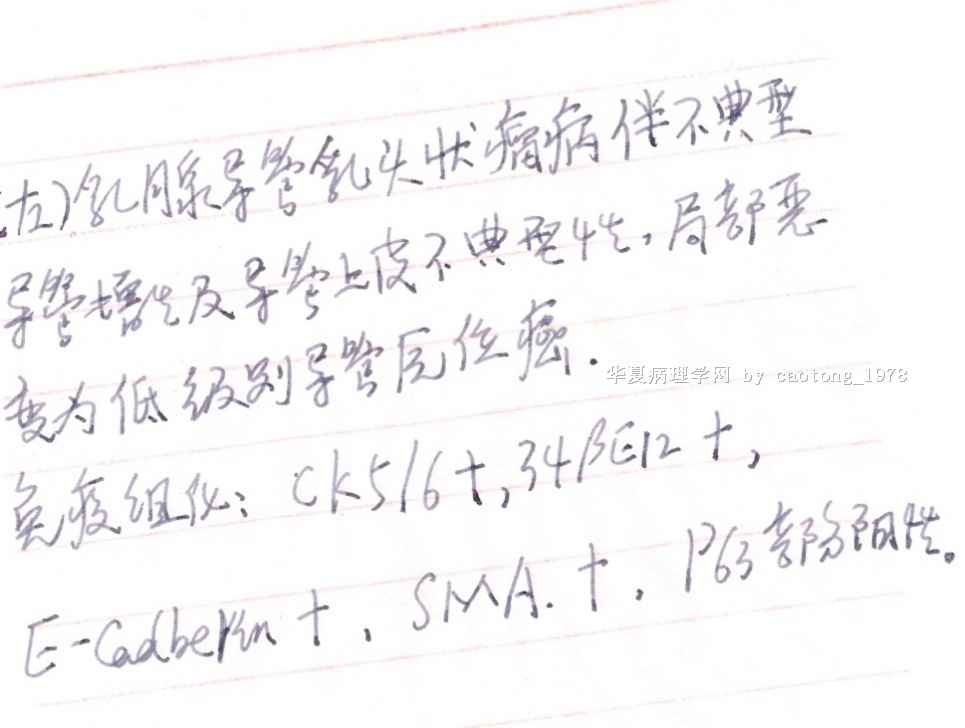 (左)乳腺导管乳头状瘤病伴不典型
导管增生及导管上皮不典型性,局部恶
变为低级别导管原位癌.
华夏病理学网 by caotong_1978
免疫组化: CK5/6 +, 34βE12 +,
E-Cadherin +, SMA. +, P63部份阳性。